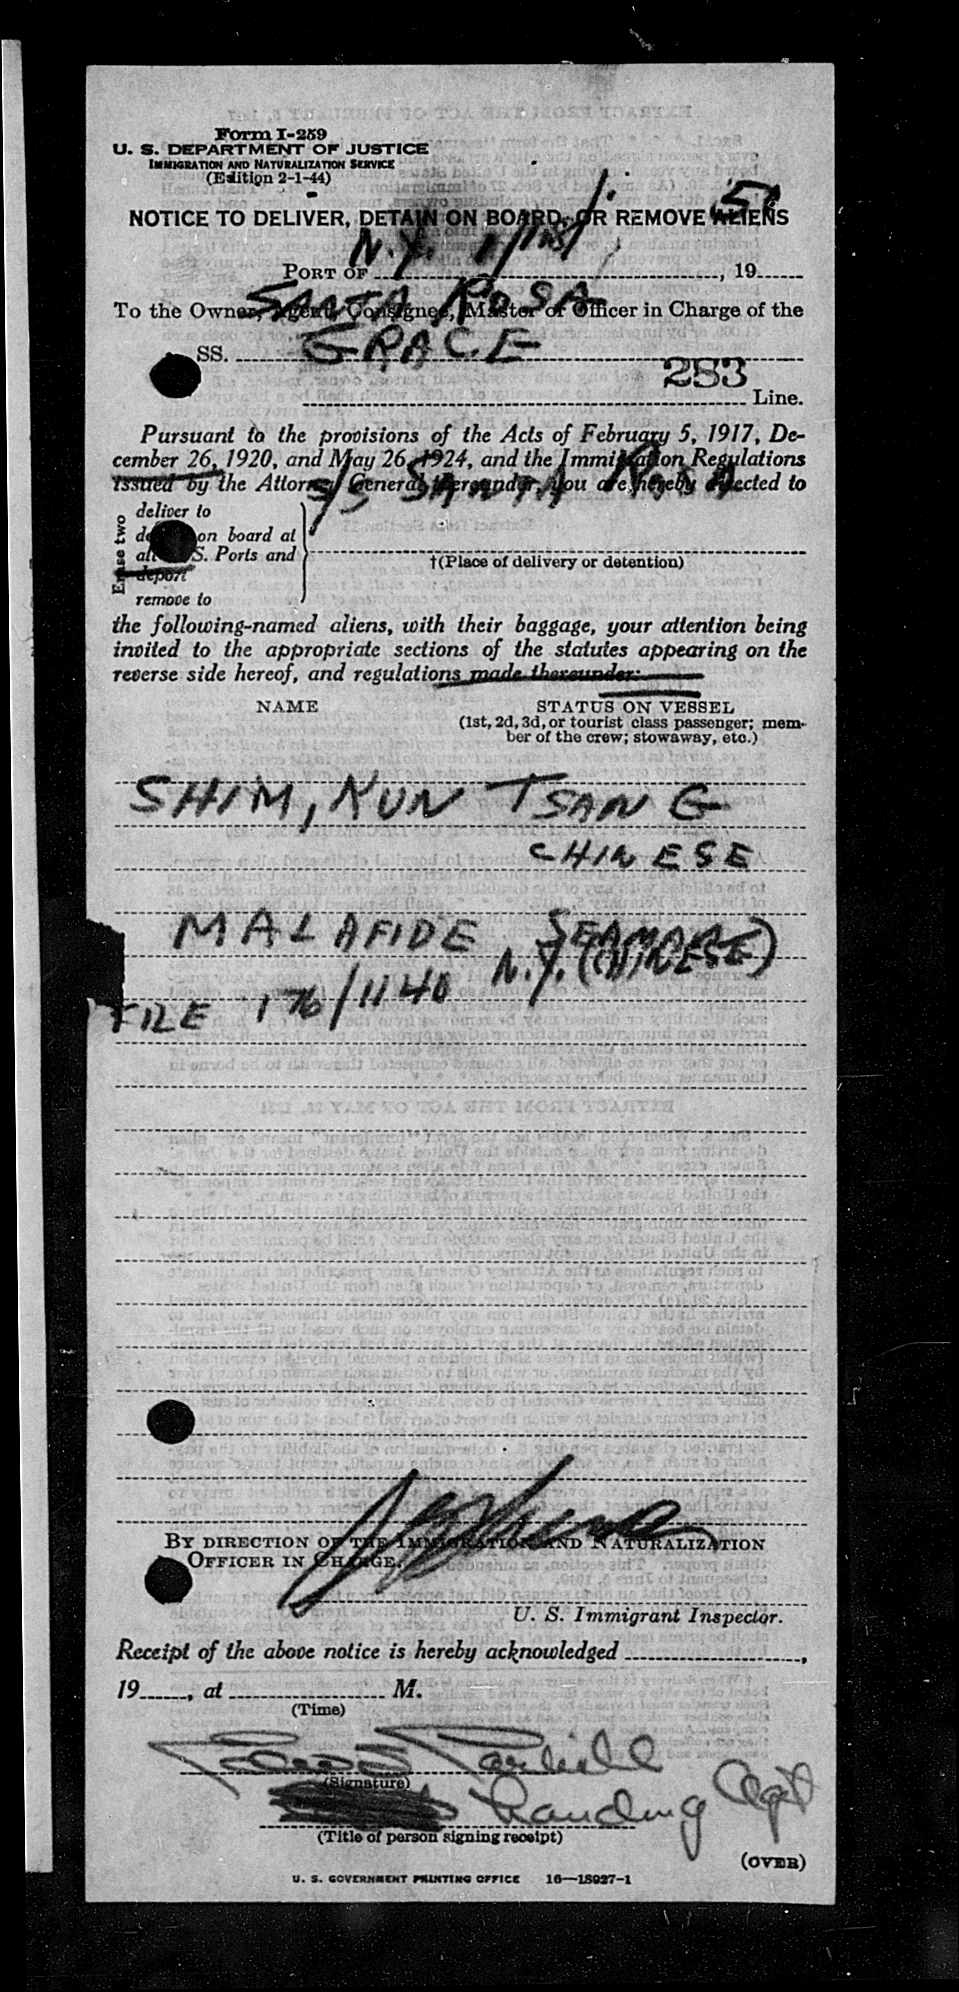 Form I-259
U. S. DEPARTMENT OF JUSTICE
IMMIGRATION AND NATURALIZATION SERVICE
(Edition 2-1-44)
NOTICE TO DELIVER, DETAIN ON BOARD, OR REMOVE ALIENS
PORT OF N.Y. , 19 51
To the Owner, Agent, Consignee, Master or Officer in Charge of the
SANTA ROSA
SS. GRACE
283 Line.
Pursuant to the provisions of the Acts of February 5, 1917, De-
cember 26, 1920, and May 26, 1924, and the Immigration Regulations
issued by the Attorney General thereunder, you are hereby directed to
S/S SANTA ROSA
Erase two
deliver to
detain on board at
all U.S. Ports and
deport
remove to
†(Place of delivery or detention)
the following-named aliens, with their baggage, your attention being
invited to the appropriate sections of the statutes appearing on the
reverse side hereof, and regulations made thereunder:
NAME STATUS ON VESSEL
(1st, 2d, 3d, or tourist class passenger; mem-
ber of the crew; stowaway, etc.)
SHIM, KUN TSANG
CHINESE
MALAFIDE SEAMAN
N.Y. (CHINESE)
FILE 176/1140
BY DIRECTION OF THE IMMIGRATION AND NATURALIZATION
OFFICER IN CHARGE.
U. S. Immigrant Inspector.
Receipt of the above notice is hereby acknowledged ,
19 , at M.
(Time)
(Signature)
Landing Agt
(Title of person signing receipt)
(OVER)
U. S. GOVERNMENT PRINTING OFFICE 16—18027-1